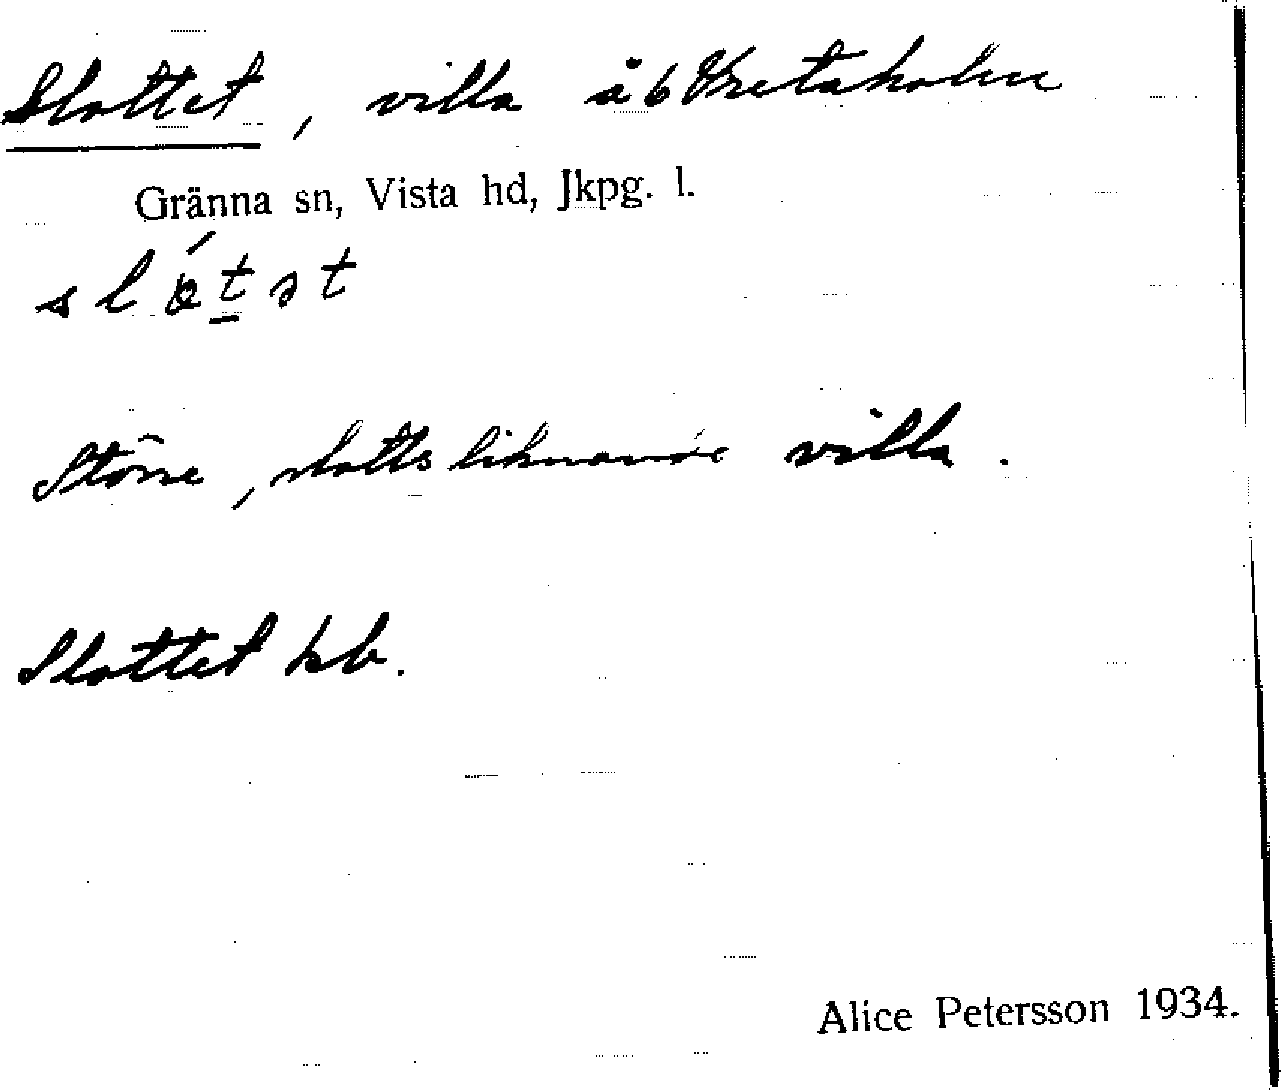 Slottet, villa å 6 Vretaholm
Gränna sn, Vista hd, Jkpg. l.
slòt̲ət
Större, slottsliknande villa.
Slottet kb.
Alice Petersson 1934.